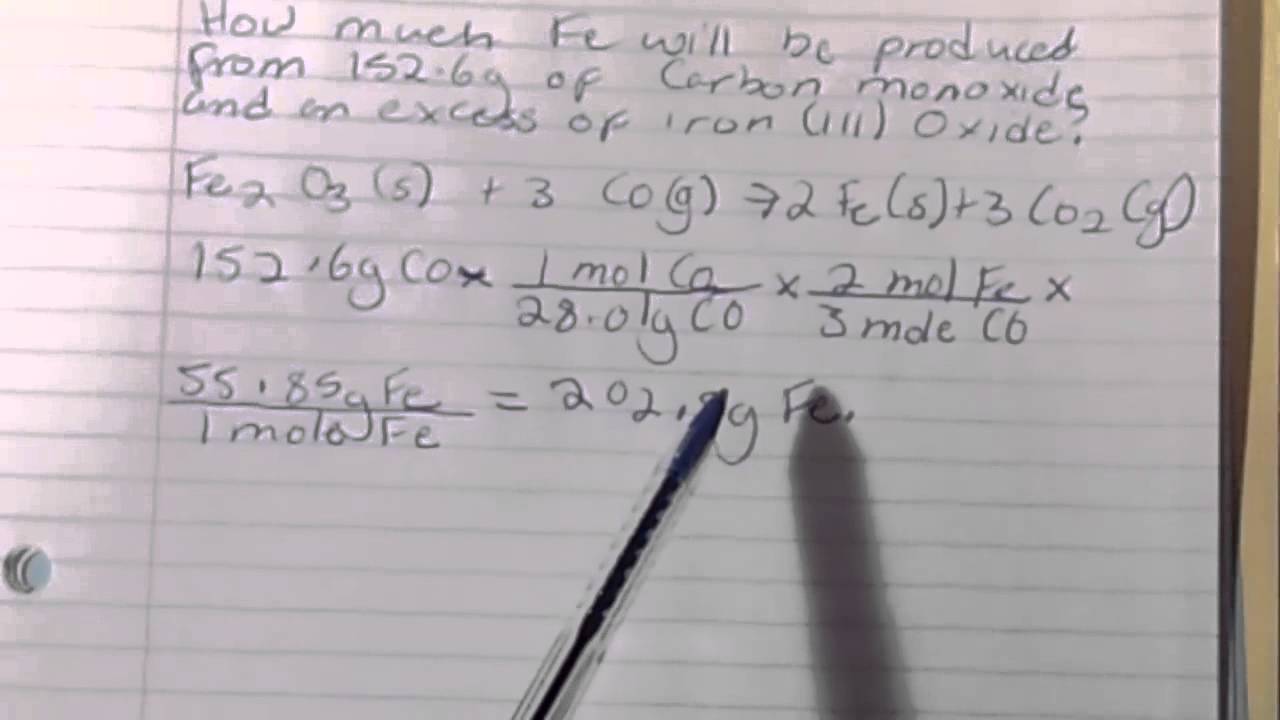 How much Fe will be produced
from 152.6g of Carbon monoxide
and an excess of iron (III) Oxide?
Fe2 O3 (s) + 3 CO(g) → 2 Fe(s) + 3 CO2 (g)
152.6g CO × 1 mol CO / 28.01g CO × 2 mol Fe / 3 mole CO ×
55.85g Fe / 1 mole Fe = Fe.